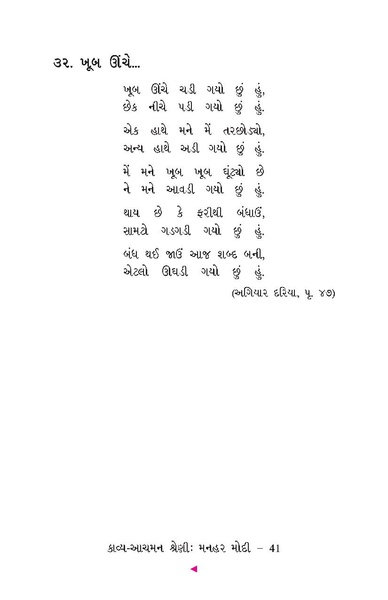 ૩૨. ખૂબ ઊંચે...
ખૂબ ઊંચે ચડી ગયો છું હું,
છેક નીચે પડી ગયો છું હું.
એક હાથે મને મેં તરછોડ્યો,
અન્ય હાથે અડી ગયો છું હું.
મેં મને ખૂબ ખૂબ ઘૂંટ્યો છે
ને મને આવડી ગયો છું હું.
થાય છે કે ફરીથી બંધાઉં,
સામટો ગડગડી ગયો છું હું.
બંધ થઈ જાઉં આજ શબ્દ બની,
એટલો ઊઘડી ગયો છું હું.
(અગિયાર દરિયા, પૃ. ૪૭)
કાવ્ય-આચમન શ્રેણીઃ મનહર મોદી – 41